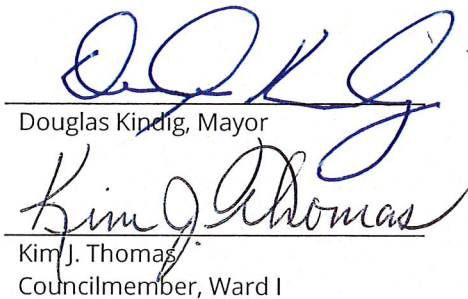 Douglas Kindig, Mayor
Kim J. Thomas
Kim J. Thomas
Councilmember, Ward I